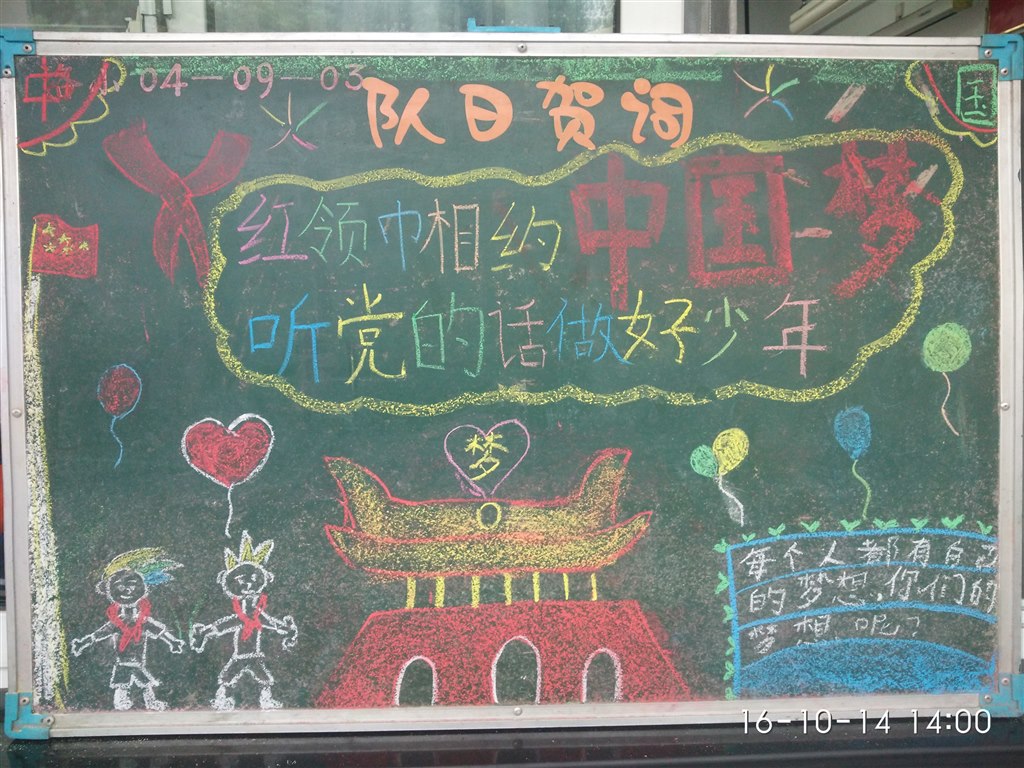 04-09-03
队日贺词
国
红领巾相约中国梦
听党的话做好少年
梦
每个人都有自己
的梦想,你们的
梦想呢?
16-10-14 14:00